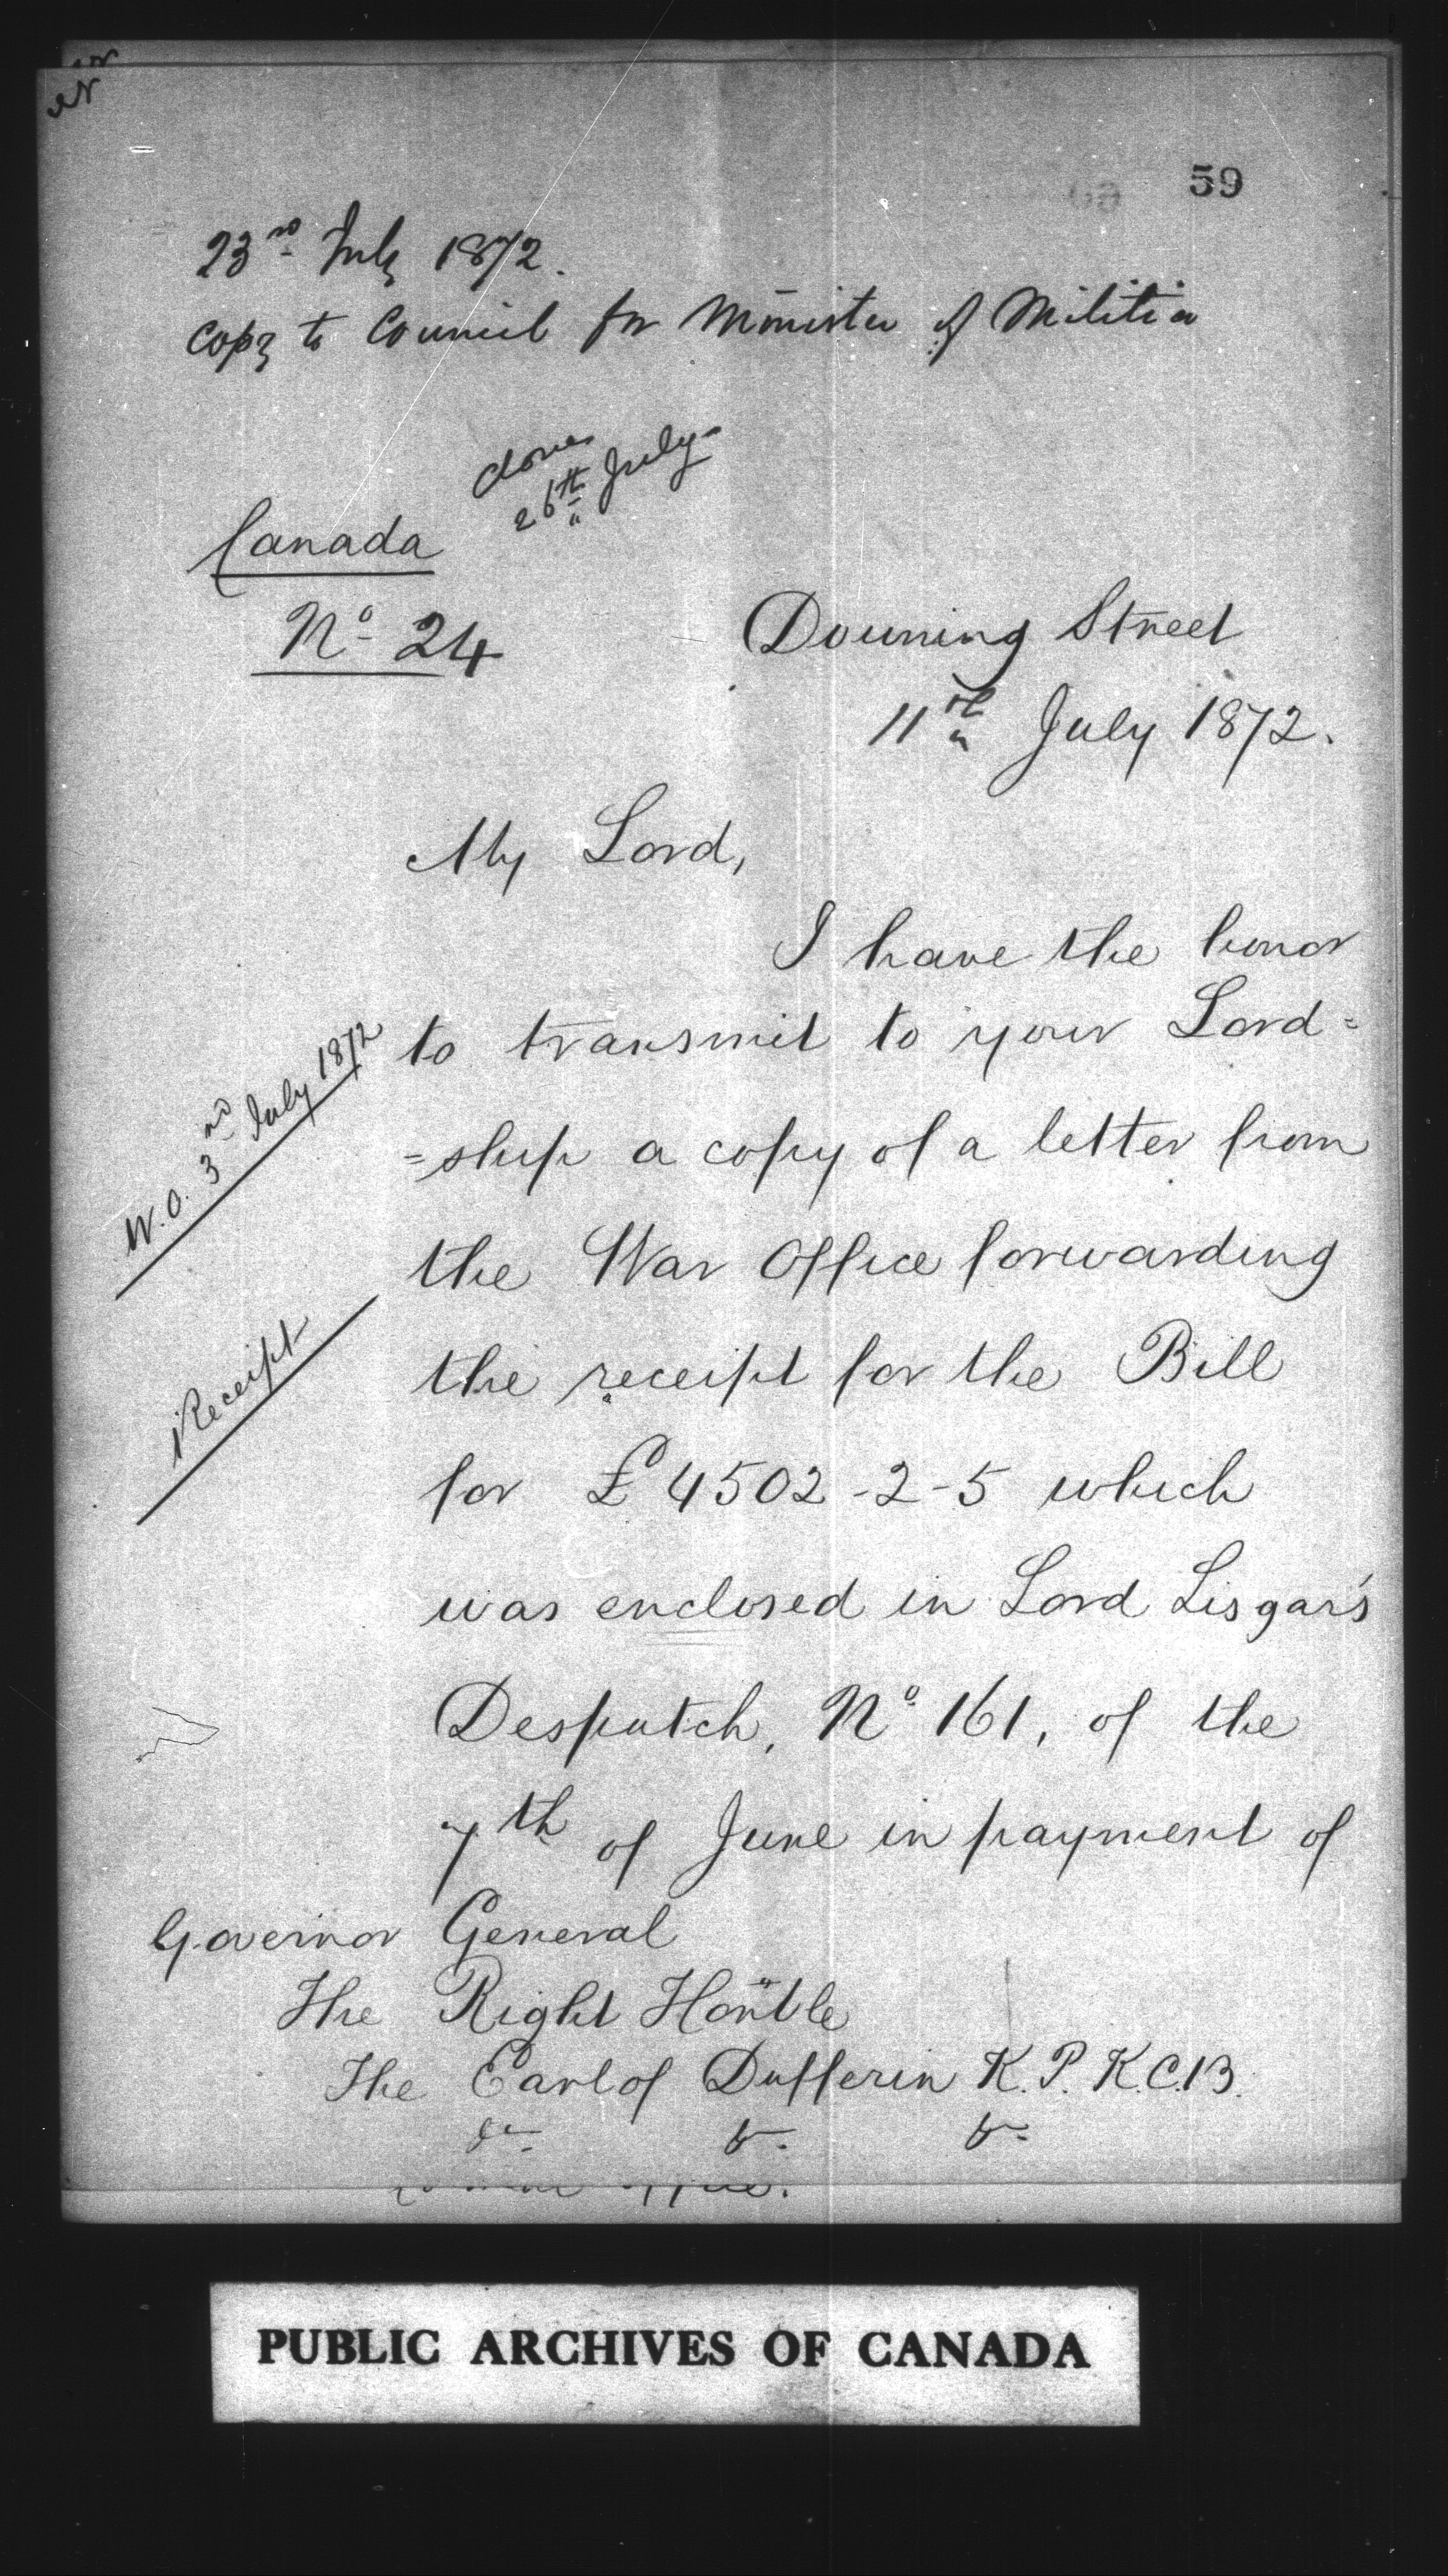 59
23rd July 1872.
Copy to Council for Minister of Militia
done
26th July
Canada
No 24
Downing Street
11th July 1872.
My Lord,
I have the honor
to transmit to your Lord=
=ship a copy of a letter from
the War Office forwarding
the receipt for the Bill
for £4502-2-5 which
was enclosed in Lord Lisgar's
Despatch, No 161, of the
7th of June in payment of
W.O. 3rd July 1872
Receipt
Governor General
The Right Honble
The Earl of Dufferin K.P. K.C.B.
&c. &c. &c.
PUBLIC ARCHIVES OF CANADA